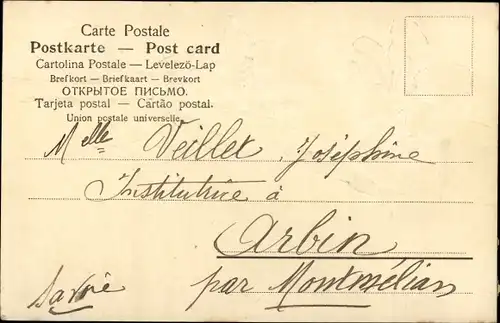 Carte Postale
Postkarte — Post card
Cartolina Postale — Levelező-Lap
Brefkort — Briefkaart — Brevkort
ОТКРЫТОЕ ПИСЬМО.
Tarjeta postal — Cartão postal.
Union postale universelle.
Melle Veillet, Joséphine
Institutrice à
Arbin
par Montmélian
Savoie